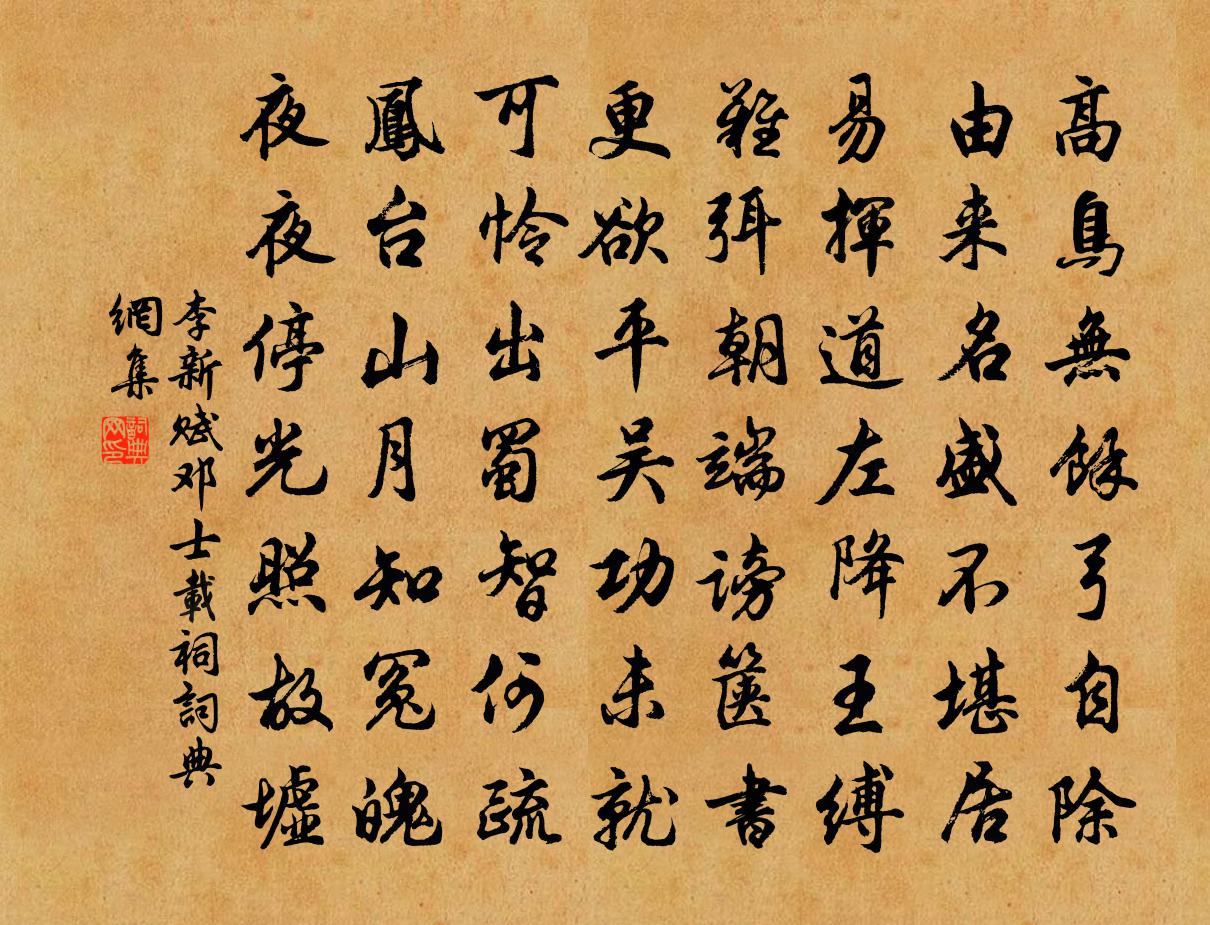 高鳥無餘弓自除
由来名盛不堪居
易揮道左降王縛
難弭朝端謗篋書
更欲平吴功未就
可怜出蜀智何疏
鳳台山月知冤魄
夜夜停光照故墟
李新赋邓士載祠詞典
網集
詞典
网印